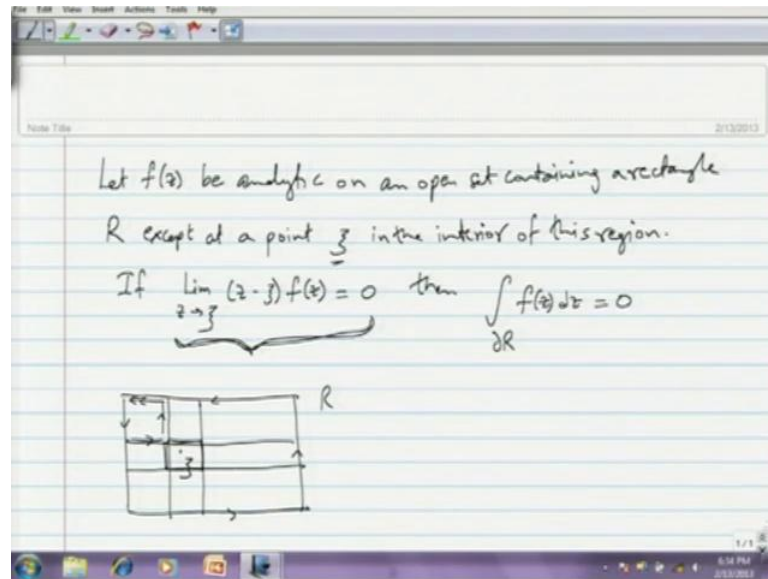 File Edit View Insert Actions Tools Help
Note Title
2/13/2013
Let f(z) be analytic on an open set containing a rectangle
R except at a point ξ in the interior of this region.
If Lim z→ξ (z-ξ) f(z) = 0 then ∫∂R f(z) dz = 0
R
ξ
1/1
6:34 PM
2/13/2013